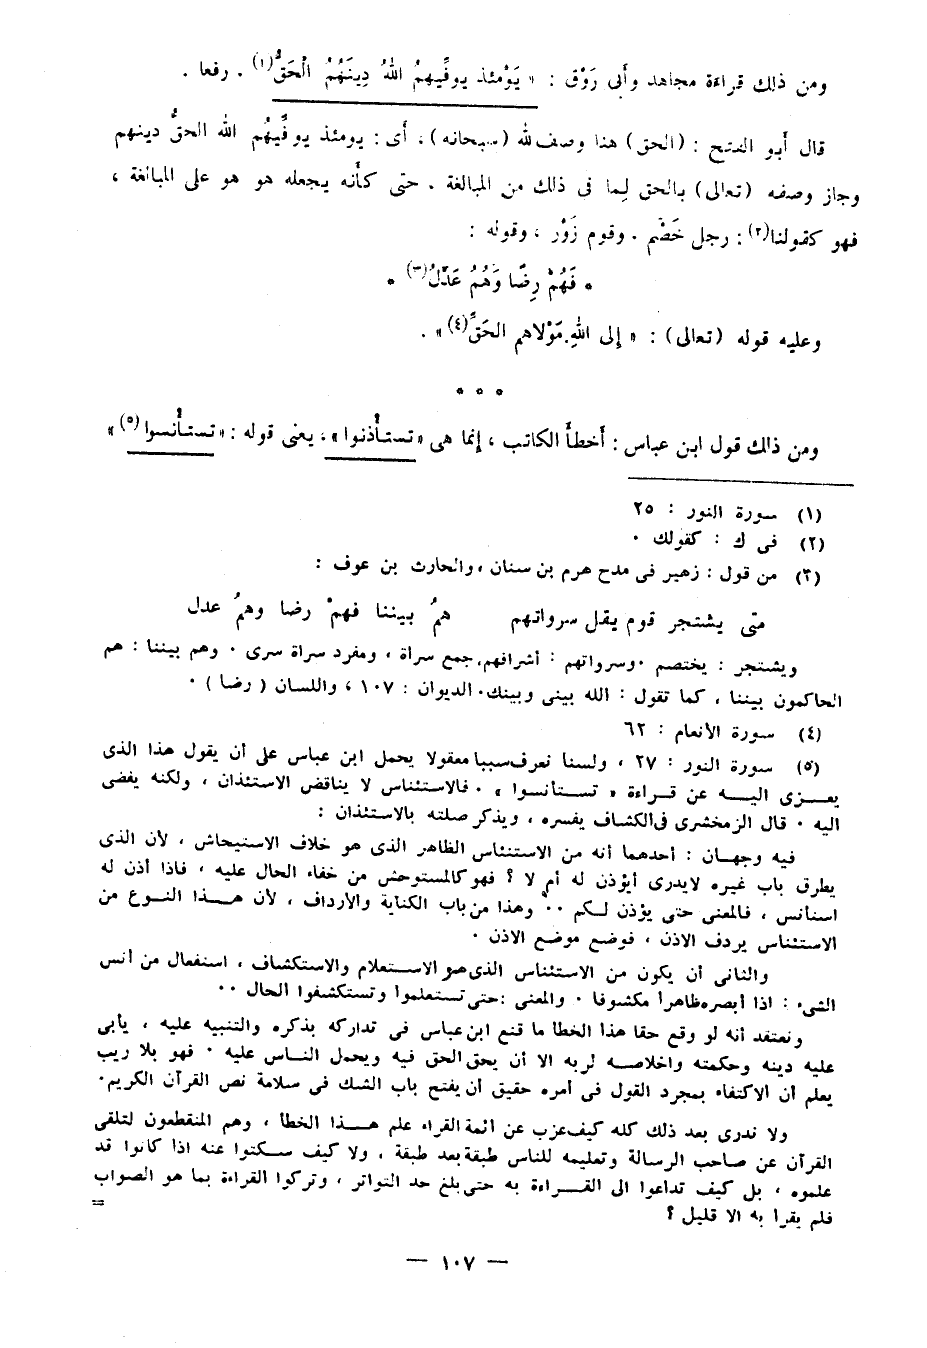 ومن ذلك قراءة مجاهد وأبى رَوْق : « يَوْمئذ يوفِّيهمُ اللهُ دِينَهُمُ الْحَقُّ(١) . رفعا .
قال أبو الفتح : (الحق) هنا وصف لله (سبحانه) ، أى : يومئذ يوفِّيهُم الله الحقُّ دينهم
وجاز وصفه (تعالى) بالحق لِما فى ذلك من المبالغة . حتى كأنه يجعله هو هو على المبالغة ،
فهو كقولنا(٢) : رجل خَصْم . وقوم زَوْر ، وقوله :
* فَهُمْ رِضًا وَهُمُ عَدْلُ(٣) *
وعليه قوله (تعالى) : « إلى اللهِ مَوْلاهم الحَقِّ(٤) » .
* * *
ومن ذلك قول ابن عباس : أخطأ الكاتب ، إنما هى « تستأذنوا » ، يعنى قوله : « تستأنسوا(٥) »
(١) سورة النور : ٢٥
(٢) فى ك : كقولك .
(٣) من قول : زهير فى مدح هرم بن سنان ، والحارث بن عوف :
متى يشتجر قوم يقل سرواتهم هُمُ بيننا فهمْ رضا وهمُ عدل
ويشتجر : يختصم . وسرواتهم : أشرافهم، جمع سراة ، ومفرد سراة سرى . وهم بيننا : هم
الحاكمون بيننا ، كما تقول : الله بينى وبينك. الديوان : ١٠٧ ، واللسان ( رضا ) .
(٤) سورة الأنعام : ٦٢
(٥) سورة النور : ٢٧ ، ولسنا نعرف سببا معقولا يحمل ابن عباس على أن يقول هذا الذى
يعـزى اليـه عن قـراءة « تسـتأنسوا » . فالاستئناس لا يناقض الاستئذان ، ولكنه يفضى
اليه . قال الزمخشرى فى الكشاف يفسره ، ويذكر صلته بالاستئذان :
فيه وجهـان : أحدهما أنه من الاستئناس الظاهر الذى هو خلاف الاستيحاش ، لأن الذى
يطرق باب غيره لا يدرى أيؤذن له أم لا ؟ فهو كالمستوحش من خفاء الحال عليه ، فاذا أذن له
استأنس ، فالمعنى حتى يؤذن لـكم .. وهذا من باب الكناية والأرداف ، لأن هـذا النـوع من
الاستئناس يردف الاذن ، فوضع موضع الاذن .
والثانى أن يكون من الاستئناس الذى هو الاسـتعلام والاستكشاف ، استفعال من آنس
الشىء : اذا أبصره ظاهرا مكشوفا . والمعنى : حتى تستعلموا وتستكشفوا الحال ..
ونعتقد أنه لو وقع حقا هذا الخطأ ما قنع ابن عباس فى تداركه بذكره والتنبيه عليه ، يأبى
عليه دينه وحكمته واخلاصـه لربه الا أن يحق الحق فيه ويحمل النـاس عليه . فهو بلا ريب
يعلم أن الاكتفاء بمجرد القول فى أمره حقيق أن يفتح باب الشك فى سلامة نص القرآن الكريم.
ولا ندرى بعد ذلك كله كيف عزب عن أئمة القراء علم هـذا الخطأ ، وهم المنقطعون لتلقى
القرآن عن صاحب الرسالة وتعليمه للناس طبقة بعد طبقة ، ولا كيف سـكتوا عنه اذا كانوا قد
علموه ، بل كيف تداعوا الى القـراءة به حتى بلغ حد التواتر ، وتركوا القراءة بما هو الصواب
فلم يقرأ به الا قليل ؟
=
— ١٠٧ —